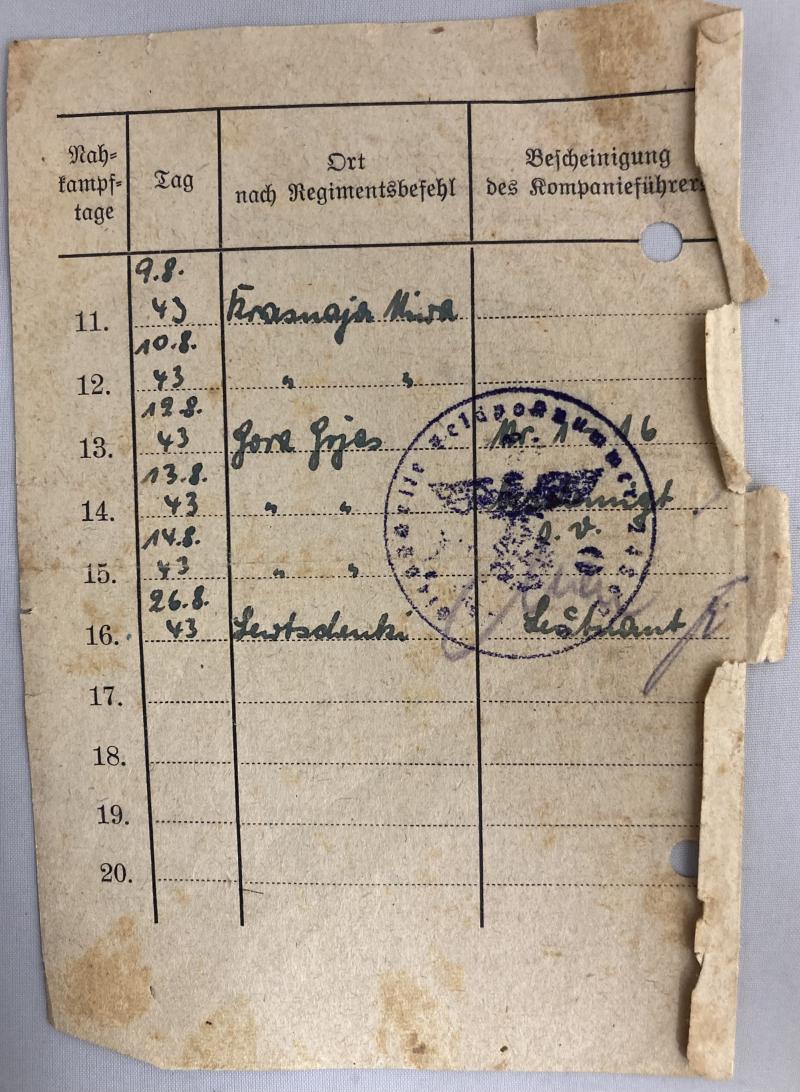 Nah-
kampf-
tage
Tag
Ort
nach Regimentsbefehl
Bescheinigung
des Kompanieführers
9.8.
11. 43 Krasnaja
10.8.
12. 43 " "
12.8.
13. 43 Gora Nr. 1 16
13.8.
14. 43 " "
14.8.
15. 43 " " o. v.
26.8.
16. 43 Leutnant
17.
18.
19.
20.
Dienststelle Feldpostnummer